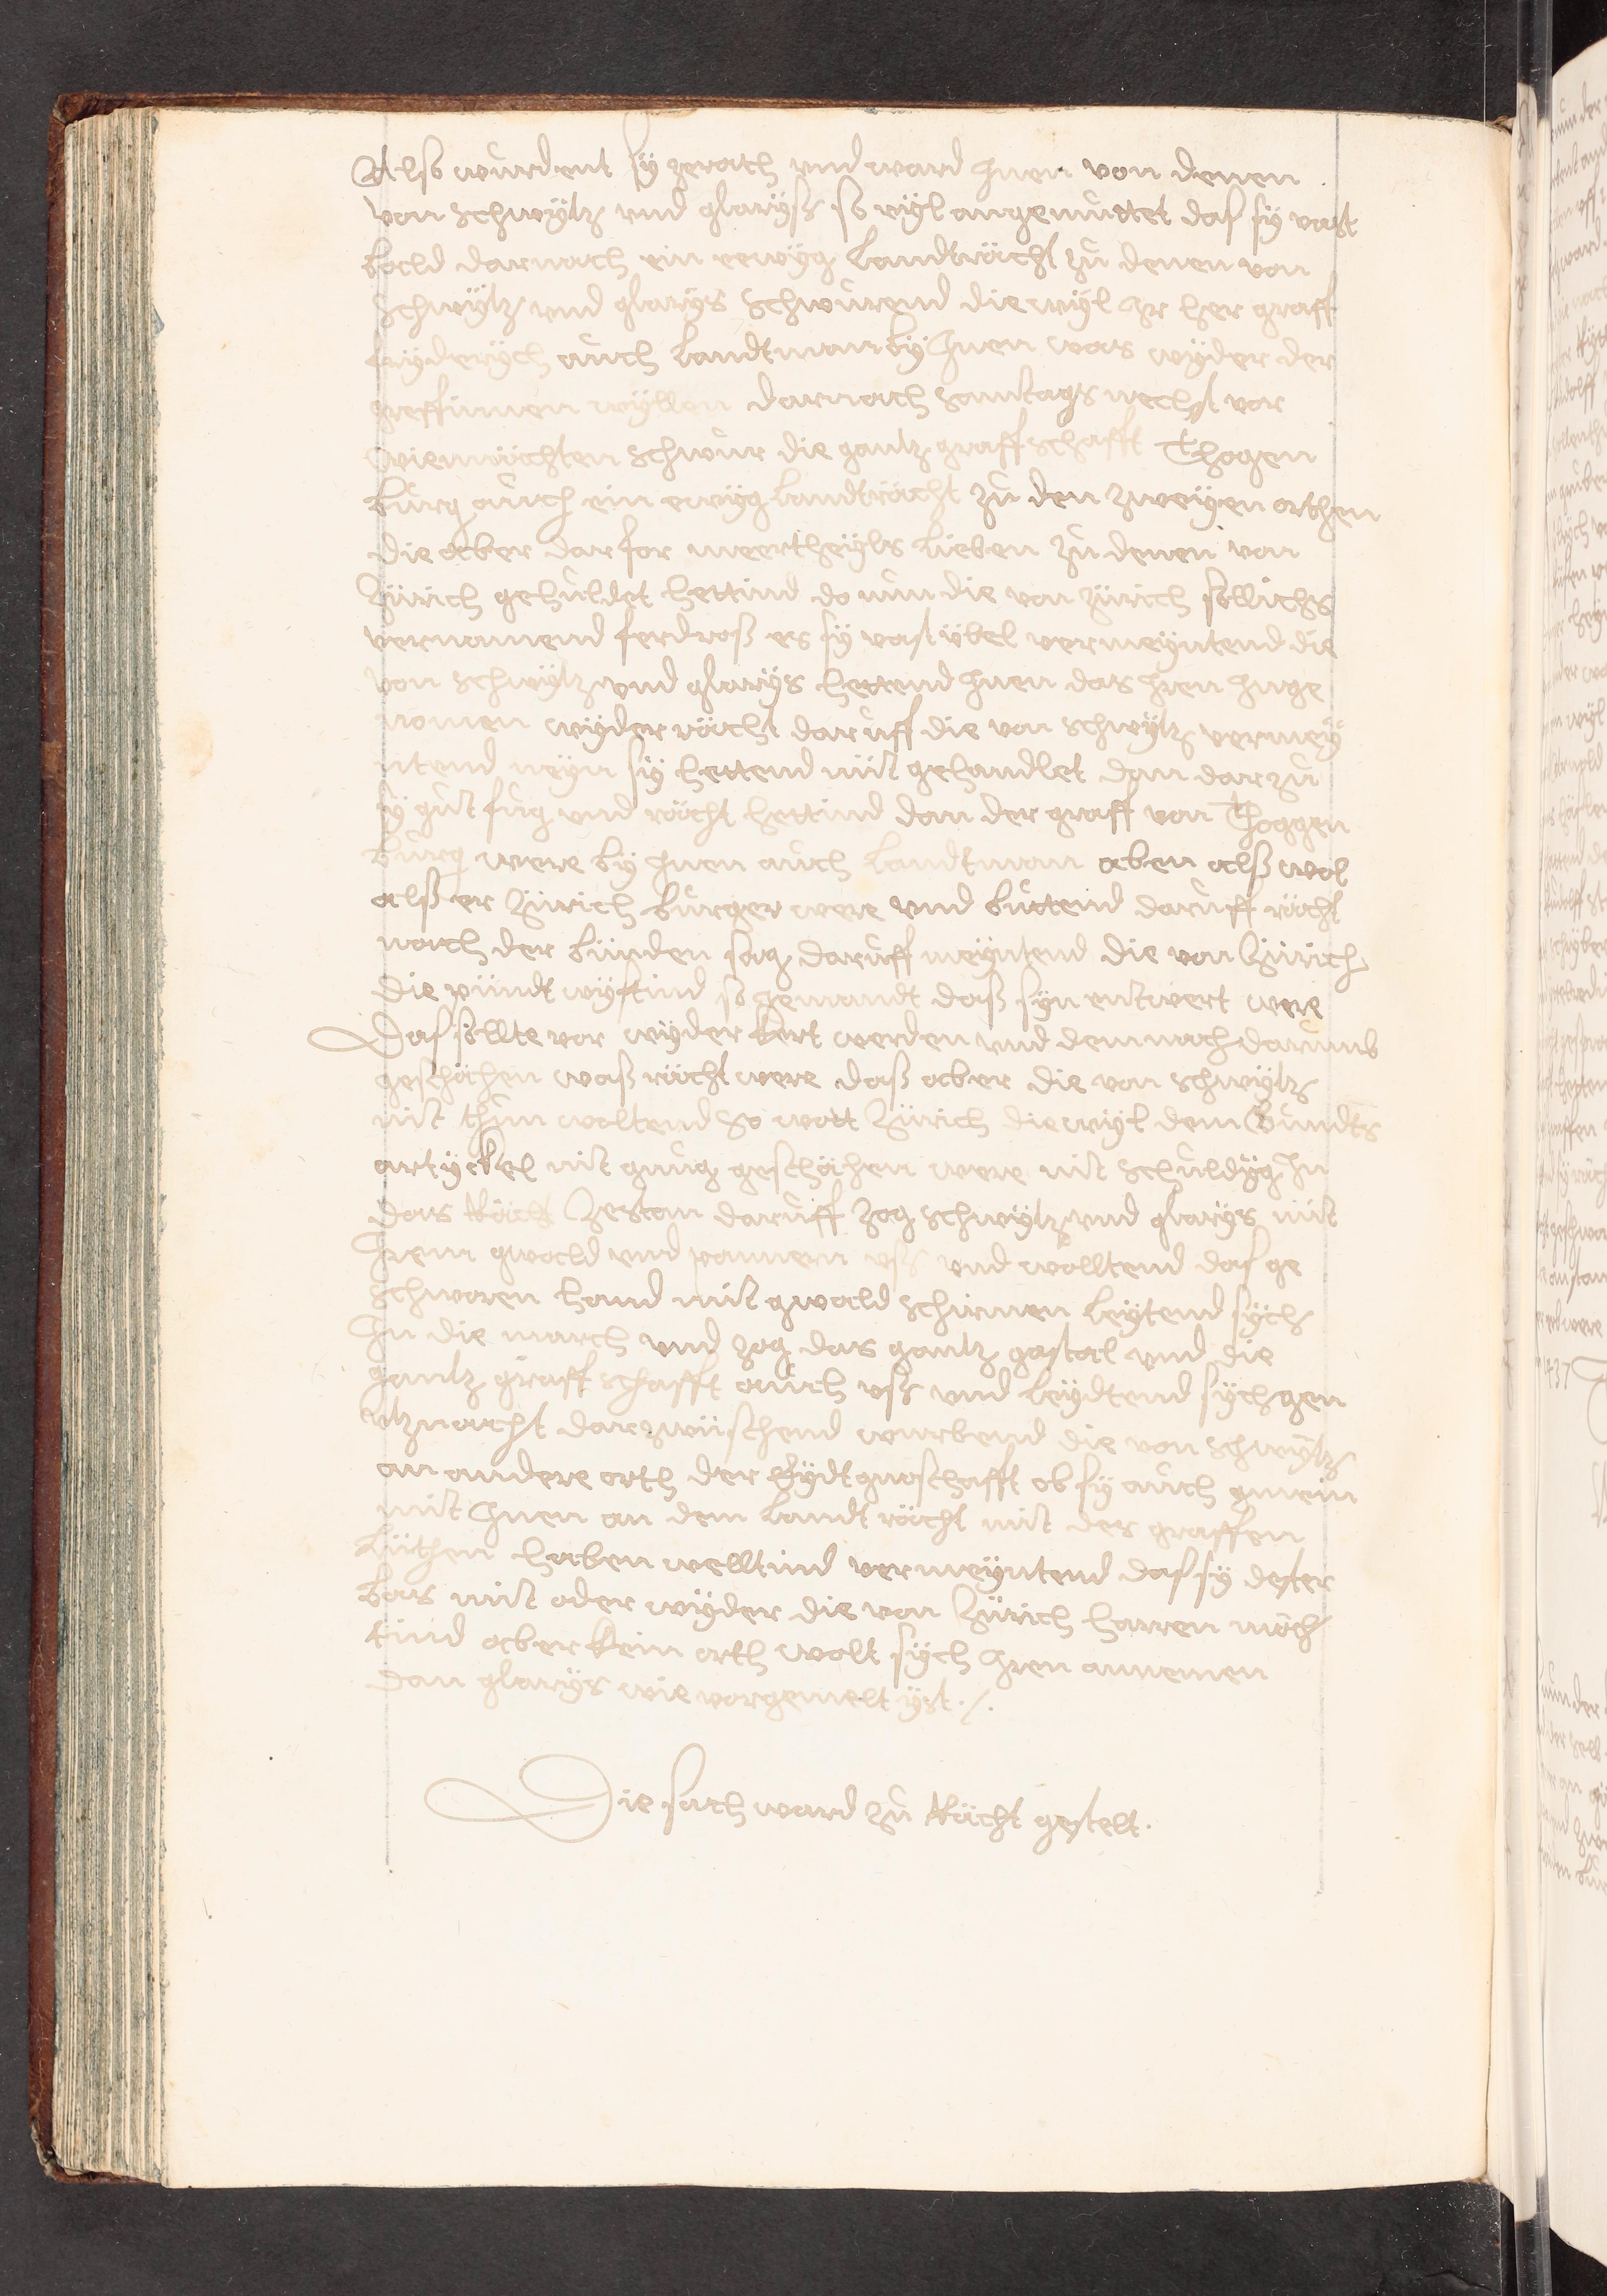 Alſo wurdent ſy zerath vnd ward Jnen von denen
von Schwÿtz vnd glarÿß ſo vÿl angemuttet daſ ſÿ vaſt
bald darnach ein eewÿg Landträcht zu denen von
Schwÿtz vnd glarÿs Schwurend die wÿl Jr her graff
frÿderÿch auch Landtman bÿ Jnen was wÿder der
greffinnen wÿllen darnach Samſtags nechſt vor
wienächten Schwur die gantz graffſchafft Thogen
burg auch ein ewÿg landträcht zu den zweÿen orthen
die aber darfor meertheÿls Lieben zu denen von
Zürich gehuldet hettind do nun die von Zürich ſollichs
vernamend ferdroß es ſÿ vaſt übel vermeÿntend die
von Schwÿtz vnd glarÿs hettend Jnen das Jren Jnge
nomen wÿder rächt daruff die von Schwÿtz vermeÿ
ntend neÿn ſÿ hettend nüt gehandlet dan dar zu
ſÿ gut fug vnd rächt hettind dan der graff von Thoggen
burg were bÿ Jnen auch Landtman aben alß wol
alß er Zürich burger were vnd buttend daruff rächt
nach der bünden ſag daruff meÿntend die von Zürich
die pündt wÿſtind ſo Jemandt daß ſÿn entwert were
Daſ ſollte vor wÿder kert werden vnd demnach darumb
geſchähen waß rächt were daß aber die von Schwÿtz
nit thun woltend So wott Zürich die wÿl dem Bundts
artÿckel nit gnug geſchähen were nit Schuldÿg Jn
das Rächt Zeſtan daruff zog Schwÿtz vnd glarÿs mit
Jrem gwald vnd pannern vß vnd wolltend daſ ge
Schworen Land mit gwald Schirmen leÿtend ſÿch
Jn die march vnd zog das gantz gaſtal vnd die
gantz graffſchafft auch vß vnd leÿdtend ſÿch gen
Vtznacht darzwüſchend wurbend die von Schwÿtz
an andere orth der Eÿdtgnoſchafft ob ſÿ auch gmein
mit Jnen an dem Landträcht mit des graffen
Lüthen haben welltind vermeÿntend daſ ſÿ deſter
bas mit oder wÿder die von Zürich harren möch
tind aber kein orth wolt ſÿch Jren annemen
dan glarÿs wie vorgemelt ÿſt ./.
Die ſach ward zu Rächt geſtelt.